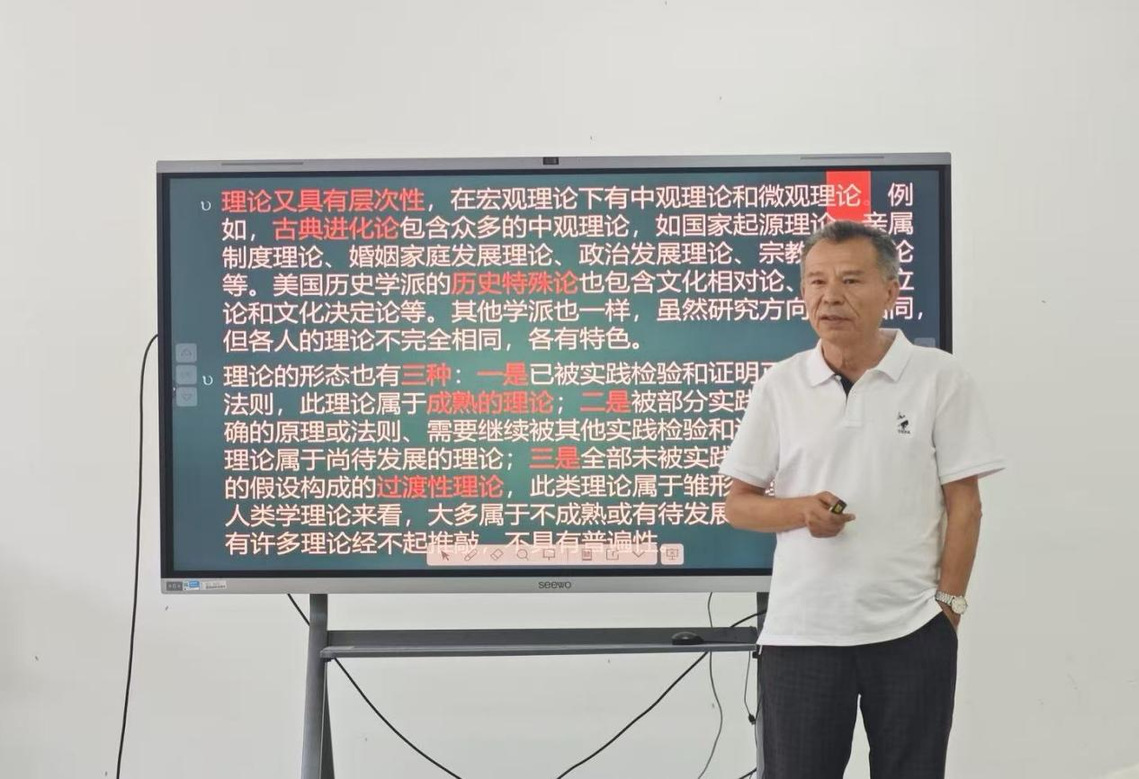 理论又具有层次性，在宏观理论下有中观理论和微观理论。例
如，古典进化论包含众多的中观理论，如国家起源理论、亲属
制度理论、婚姻家庭发展理论、政治发展理论、宗教 论
等。美国历史学派的历史特殊论也包含文化相对论、 立
论和文化决定论等。其他学派也一样，虽然研究方向 同，
但各人的理论不完全相同，各有特色。
理论的形态也有三种：一是已被实践检验和证明
法则，此理论属于成熟的理论；二是被部分实践
确的原理或法则、需要继续被其他实践检验和
理论属于尚待发展的理论；三是全部未被实践
的假设构成的过渡性理论，此类理论属于雏形
人类学理论来看，大多属于不成熟或有待发展
有许多理论经不起推敲，不具有普遍性
seewo